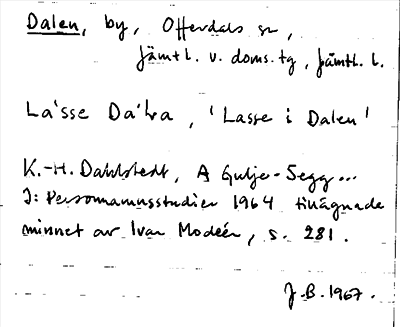 Dalen, by, Offerdals sn,
Jämtl. v. doms. tg, Jämtl. l.
La'sse Da'ɫa, 'Lasse i Dalen'
K.-H. Dahlstedt, A Gulje-Segg...
I: Personnamnsstudier 1964 tillägnade
minnet av Ivar Modéer, s. 281.
J.B. 1967.